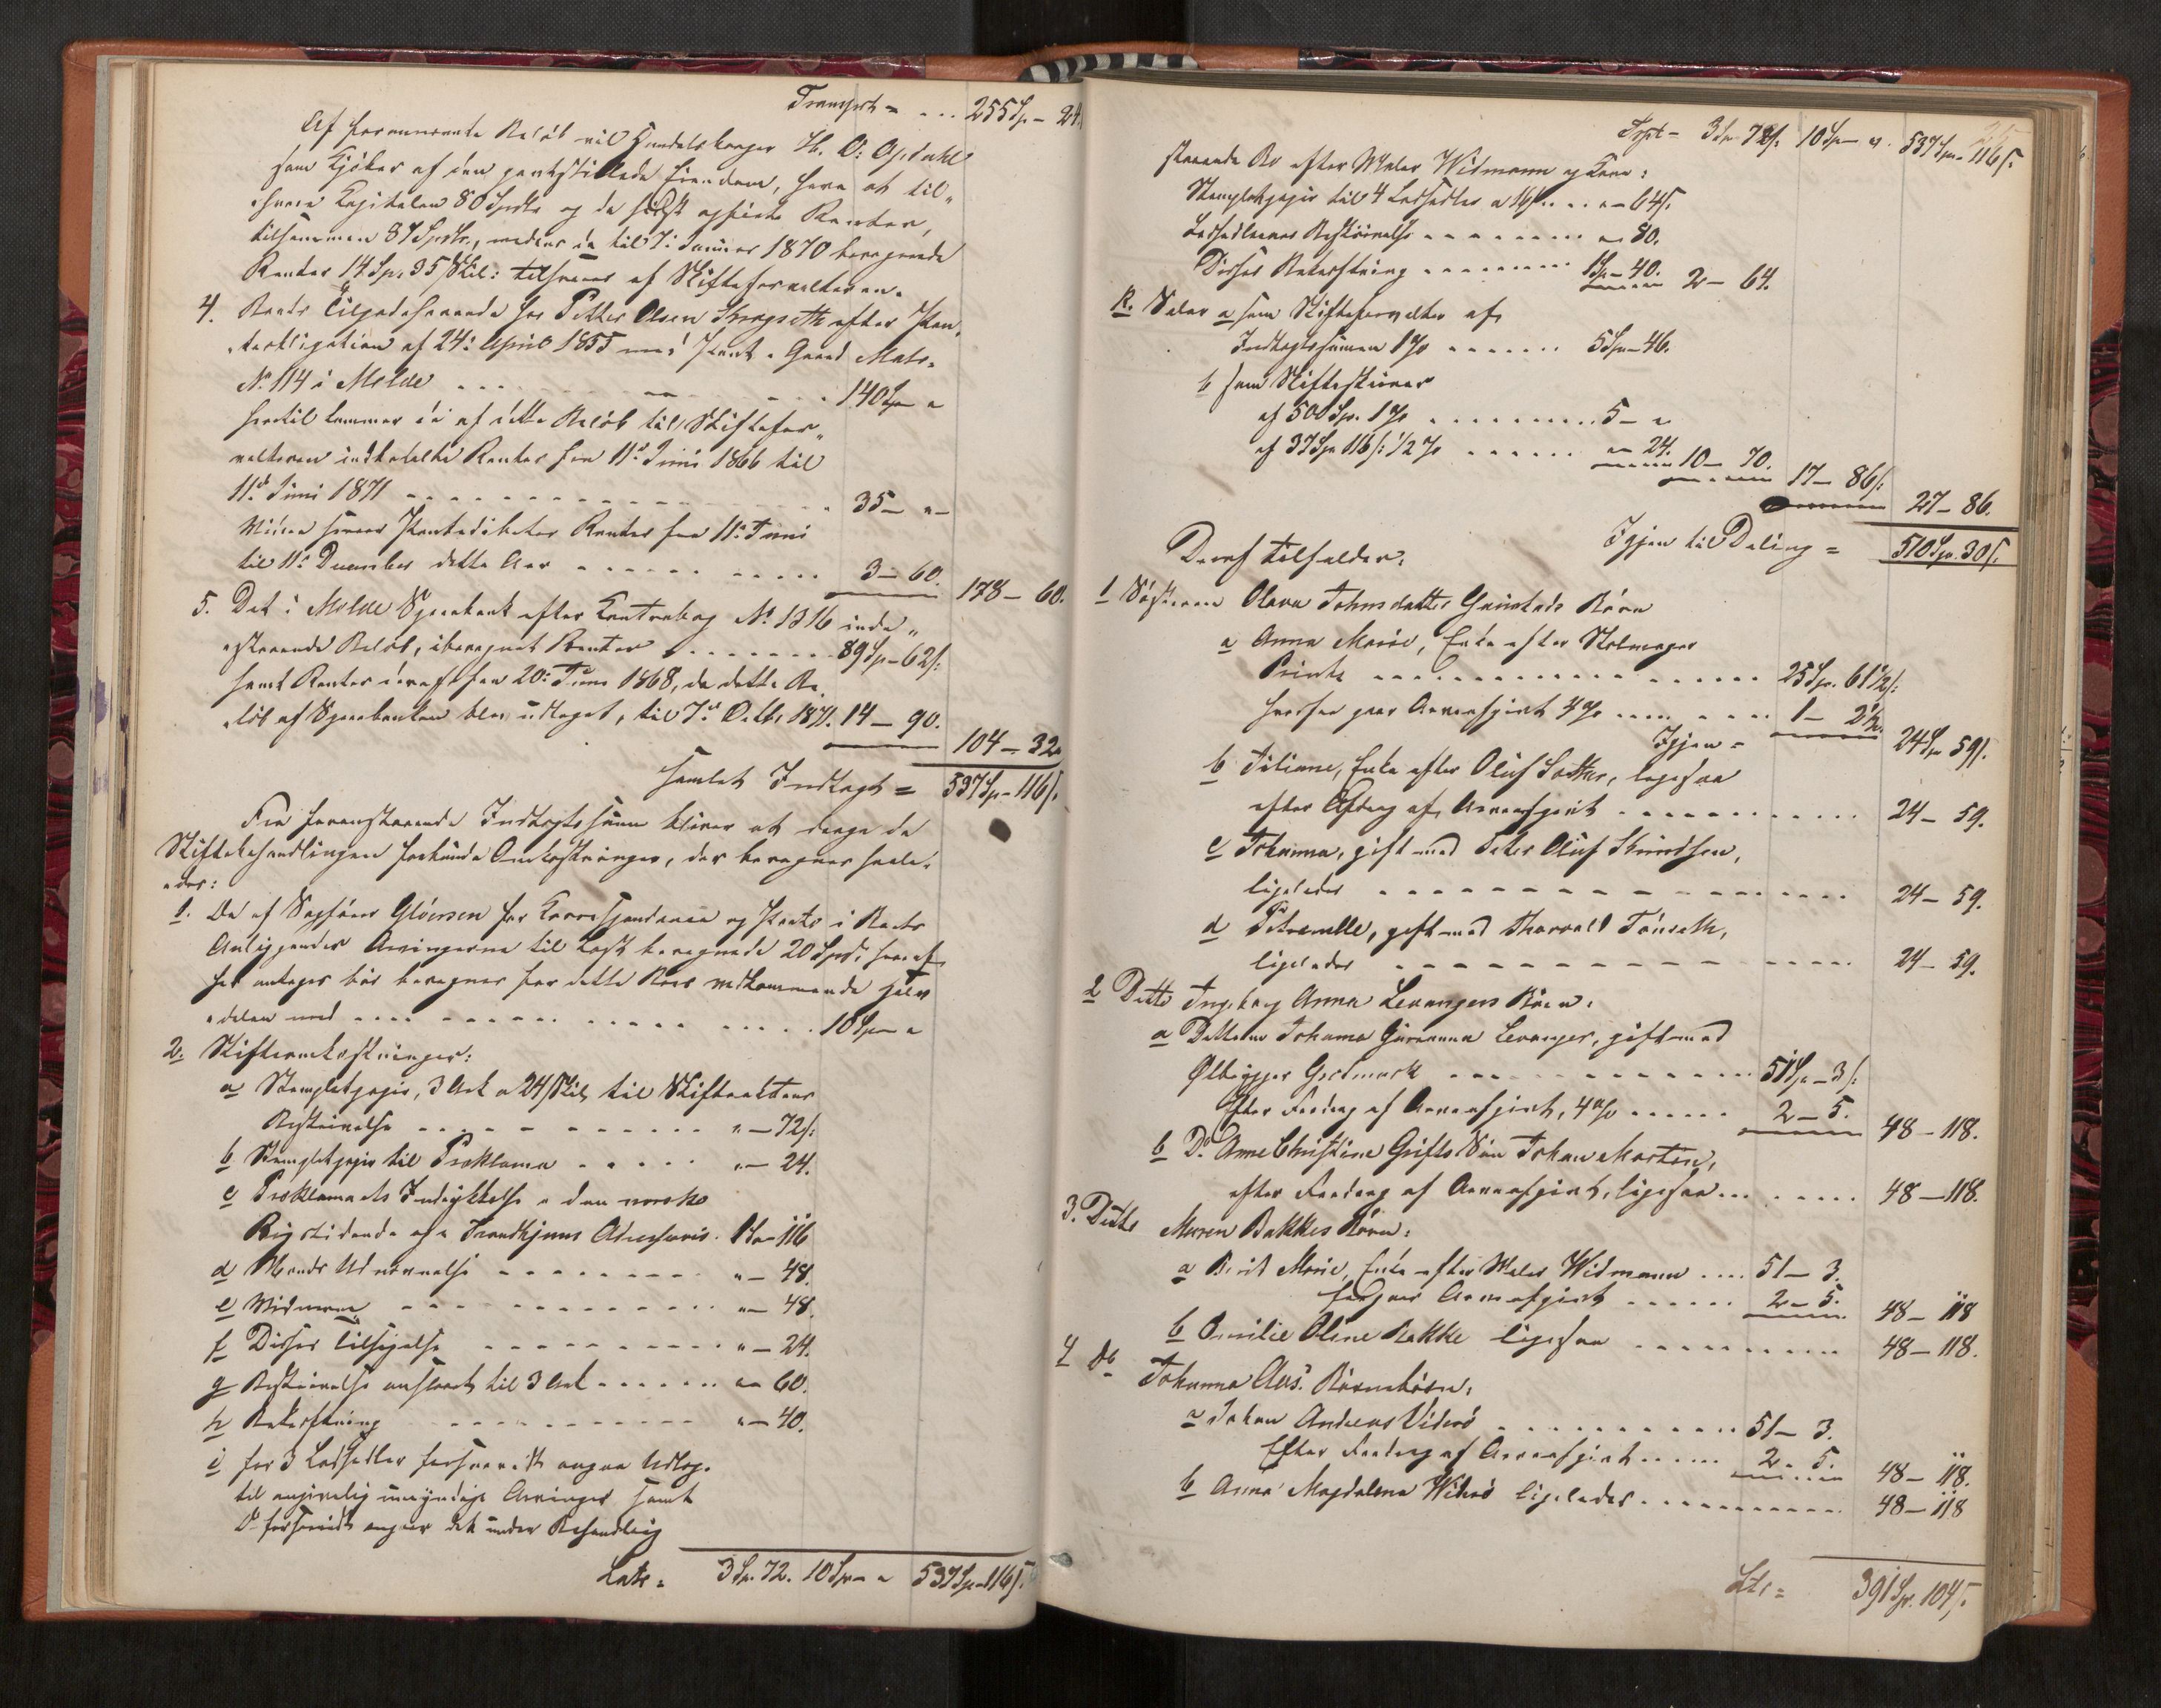 Transport = ... 255 Sp - 24.
Af forannævnte Beløb vil Handelsborger H. O: Opdahl
som Kjøber af den pantstillede Eiendom, have at til„
svare Kapitalen 80 Spdlr og de sidst opførte Renter,
tilsammen 87 Spdlr., medens de til 7: Januar 1870 beregnede
Renter 14 Sp. 35 Skil: tilsvares af Skifteforvalteren.
4. Boets Tilgodehavende hos Petter Olsen efter Pan„
teobligation af 24: April 1855 med Pant i Gaard Matr.
No 114 i Molde ... 140 Sp "
hertil kommer de af dette Beløb til Skiftefor„
valteren indbetalte Renter fra 11te Juni 1866 til
11te Juni 1871 ... 35 - "
Videre svarer Pantedebitor Renter fra 11te Juni
til 11te December dette Aar ... 3 - 60. 178 - 60.
5. Det i Molde Sparebank efter Contrabog No 1316 inde„
staaende Beløb, iberegnet Renter ... 89 Sp - 62 s:
samt Renter deraf fra 20: Juni 1868, da dette Be„
løb af Sparebanken blev udtaget, til 7de Octbr 1871. 14 - 90.
104 - 32
Samlet Indtægt = 537 Sp - 116 s.
Fra foranstaaende Indtægtssum bliver at drage de
Skiftebehandlingen forbundne Omkostninger, der beregnes saale„
des:
1. De af Sagfører Gløersen for Correspondance og Porto i Boets
Anliggender Arvingerne til Last beregnede 20 Spd: hvoraf
her antages bør beregnes for dette Boes vedkommende Halv
delen med ... 10 Sp "
2. Skifteomkostninger:
a Stempletpapir, 3 Ark a 24 Skil, til Skifteaktens
Beskrivelse ... " - 72 s:
b Stempletpapir til Proklama ... " - 24.
c Proklamaets Indrykkelse i den norske
Rigstidende og i Trondhjems Adresseavis. 1 Sp - 116
d Mænds Udnævnelse ... " - 48.
e Vidnerne ... " - 48.
f Disses Tilsigelse ... " - 24.
g Beskrivelse anslaaet til 3 Ark ... " - 60.
h Bekræftning ... " - 40.
i for 3 Lodsedler forsaavidt angaar Udlæg
til umyndige Arvinger samt
Do forsaavidt angaar det under Behandling
Lats = 3 Sp. 72. 10 Sp - " 537 Sp - 116 s.
Trpt - 3 Sp 72 s. 10 Sp - " . 537 Sp - 116 s.
staaende Bo efter Maler Widmann og Kone:
Stempletpapir til 4 Lodsedler a 16 s ... " - 64 s.
Lodsedlernes Beskrivelse ... " - 80.
Disses Bekræftning ... 1 Sp - 40. 2 - 64.
k. Salær a som Skifteforvalter af
Indtægtssummen 1 % ... 5 Sp - 46.
b som Skifteskriver
af 500 Sp. 1 % ... 5 - "
af 37 Sp 116 s: 1/2 % ... " 24. 10 - 70. 17 - 86 s:
27 - 86.
Igjen til Deling = 510 Sp. 30 s.
Deraf tilfalder:
1 Søsteren Olava Johnsdatter Børn
a Anna Marie, Enke efter Stolmager
... 25 Sp. 61 1/2 s:
herfra gaar Arveafgivt 4 % ... 1 - 2 1/2.
Igjen = 24 Sp 59 s.
b Juliane, Enke efter Oluf ligesaa
efter Afdrag af Arveafgivt ... 24 - 59.
c Johanna, gift med Peter Oluf Knudsen,
ligeledes ... 24 - 59.
d Petronelle, gift med Thorvald
ligeledes ... 24 - 59.
2 Ditto Ingeborg Anna Levangers Børn:
a Datteren Johanna Levanger, gift med
Ølbrygger ... 51 Sp - 3 s:
Efter Fradrag af Arveafgivt, 4 % ... 2 - 5. 48 - 118.
b Do Anne Christine Grifts Søn Johan Martin,
efter Fradrag af Arveafgivt, ligesaa ... 48 - 118.
3. Ditto Maren Bakkes Børn:
a Berit Marie, Enke efter Maler Widmann ... 51 - 3.
fragaar Arveafgivt ... 2 - 5. 48 - 118
b Emilie Oline Bakke ligesaa ... 48 - 118.
4 Do Johanna Børnebørn:
a Johan Andreas Viderø ... 51 - 3.
Efter Fradrag af Arveafgivt ... 2 - 5. 48 - 118.
b Anna Magdalena Viderø ligeledes ... 48 - 118
Lts = 391 Sp. 104 s.